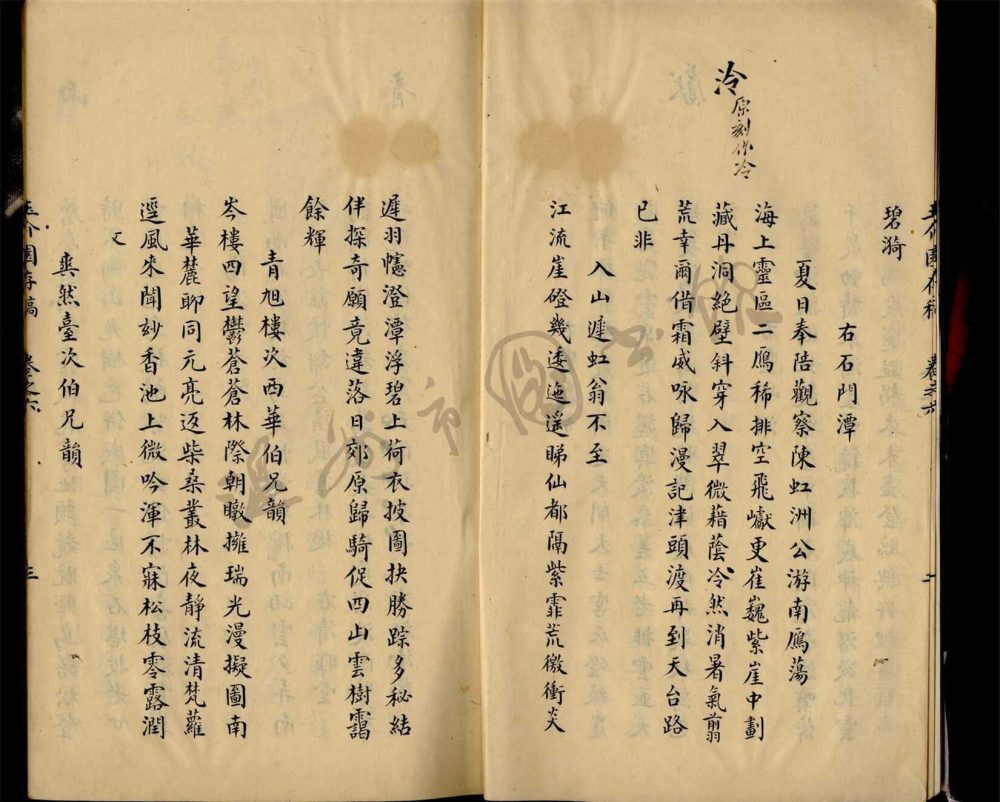 泠
原刻作冷
碧漪
右石門潭
夏日奉陪觀察陳虹洲公游南鴈蕩
海上靈區二鴈稀排空飛巘更崔巍紫崖中劃
藏丹洞絕壁斜穿入翠微藉蔭冷然消暑氣翦
荒幸爾借霜威咏歸漫記津頭渡再到天台路
已非
入山遲虹翁不至
江流崖磴幾逶迤遥睇仙都隔紫霏荒徼衝炎
遲羽幰澄潭浮碧上荷衣披圖抉勝踪多秘結
伴探奇願竟違落日郊原歸騎促四山雲樹靄
餘輝
青旭樓次西華伯兄韻
岑樓四望鬱蒼蒼林際朝暾擁瑞光漫擬圖南
華麓聊同元亮返柴桑叢林夜靜流清梵蘿
逕風來聞妙香池上微吟渾不寐松枝零露潤
文
爽然臺次伯兄韻
卷之六
三